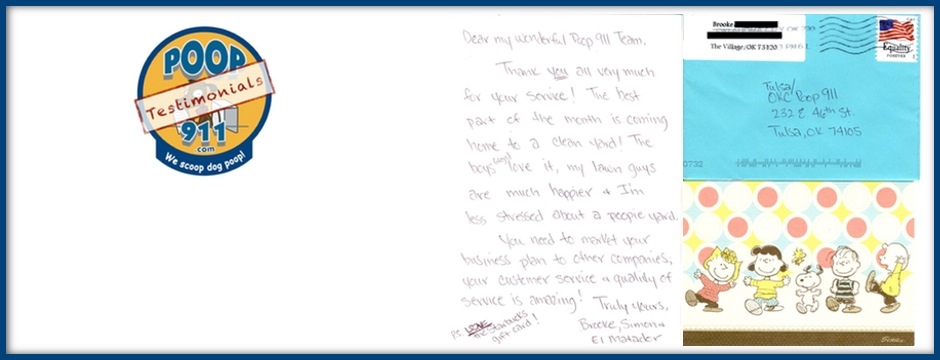 POOP
Testimonials
911
.com
We scoop dog poop!
Dear my wonderful Poop 911 Team,
Thank you all very much
for your service! The best
part of the month is coming
home to a clean yard! The
boys (dogs) love it, my lawn guys
are much happier & I'm
less stressed about a poopie yard.
You need to market your
business plan to other companies,
your customer service & quality of
service is amazing! Truly yours,
Brooke, Simon &
El Matador
P.S. LOVE
the Starbucks
gift card!
Brooke
The Village, OK 73120
Equality
FOREVER
Tulsa/
OKC Poop 911
232 E. 46th St.
Tulsa, OK 74105
0732